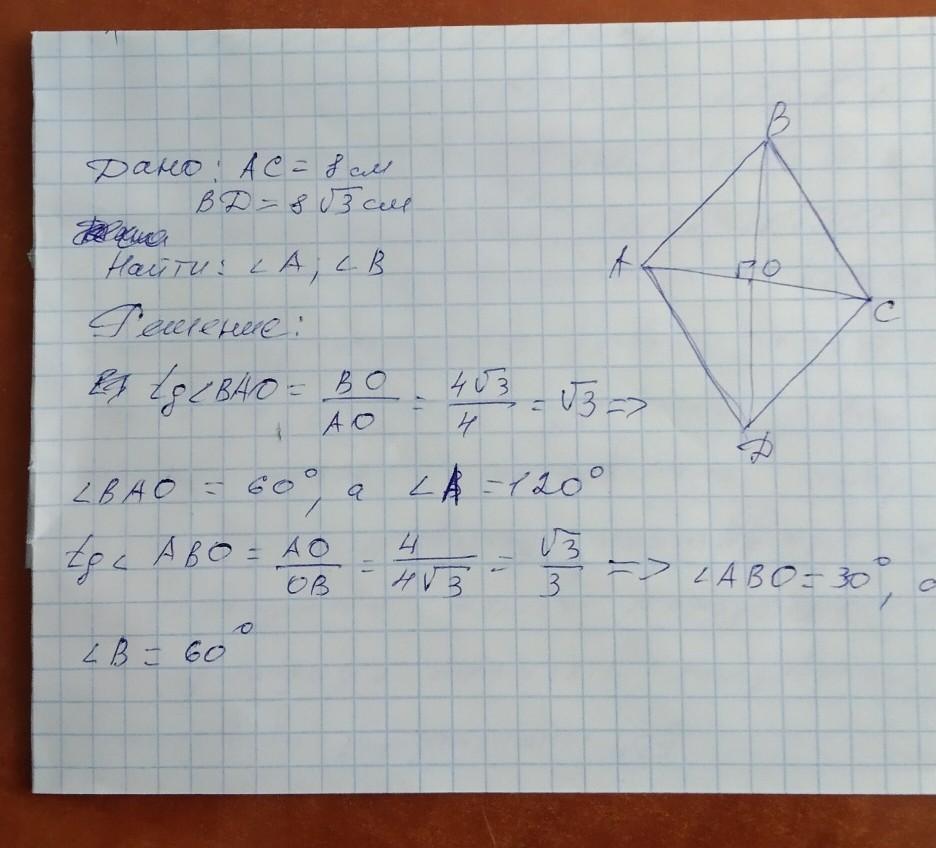 Дано: AC = 8 см
BД = 8 √3 см
Найти: ∠A, ∠B
Решение:
tg∠BAO = BO/AO = 4√3/4 = √3 =>
∠BAO = 60°, а ∠A = 120°
tg∠ABO = AO/OB = 4/4√3 = √3/3 => ∠ABO = 30°, а
∠B = 60°
B
A
O
C
Д